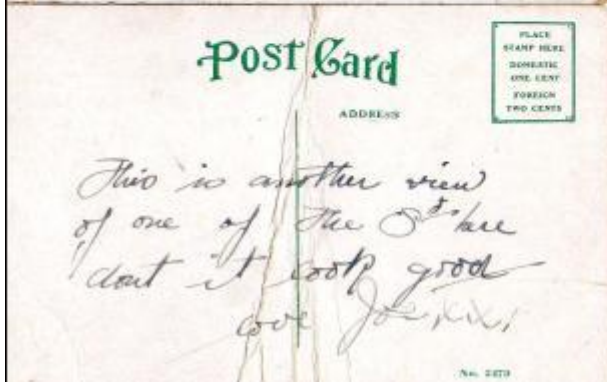 Post Card
PLACE
STAMP HERE
DOMESTIC
ONE CENT
FOREIGN
TWO CENTS
ADDRESS
This is another view
of one of the Sts here
dont it look good
love Joe, x.x.x.